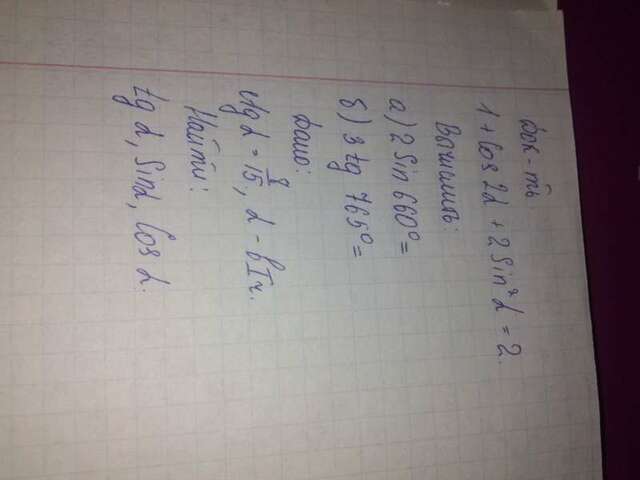 Док-ть:
1 + Cos 2α + 2 Sin²α = 2.
Вычислить:
а) 2 Sin 660° =
б) 3 tg 765° =
Дано:
ctg α = 8/15, α - в I ч.
Найти:
tg α, Sin α, Cos α.